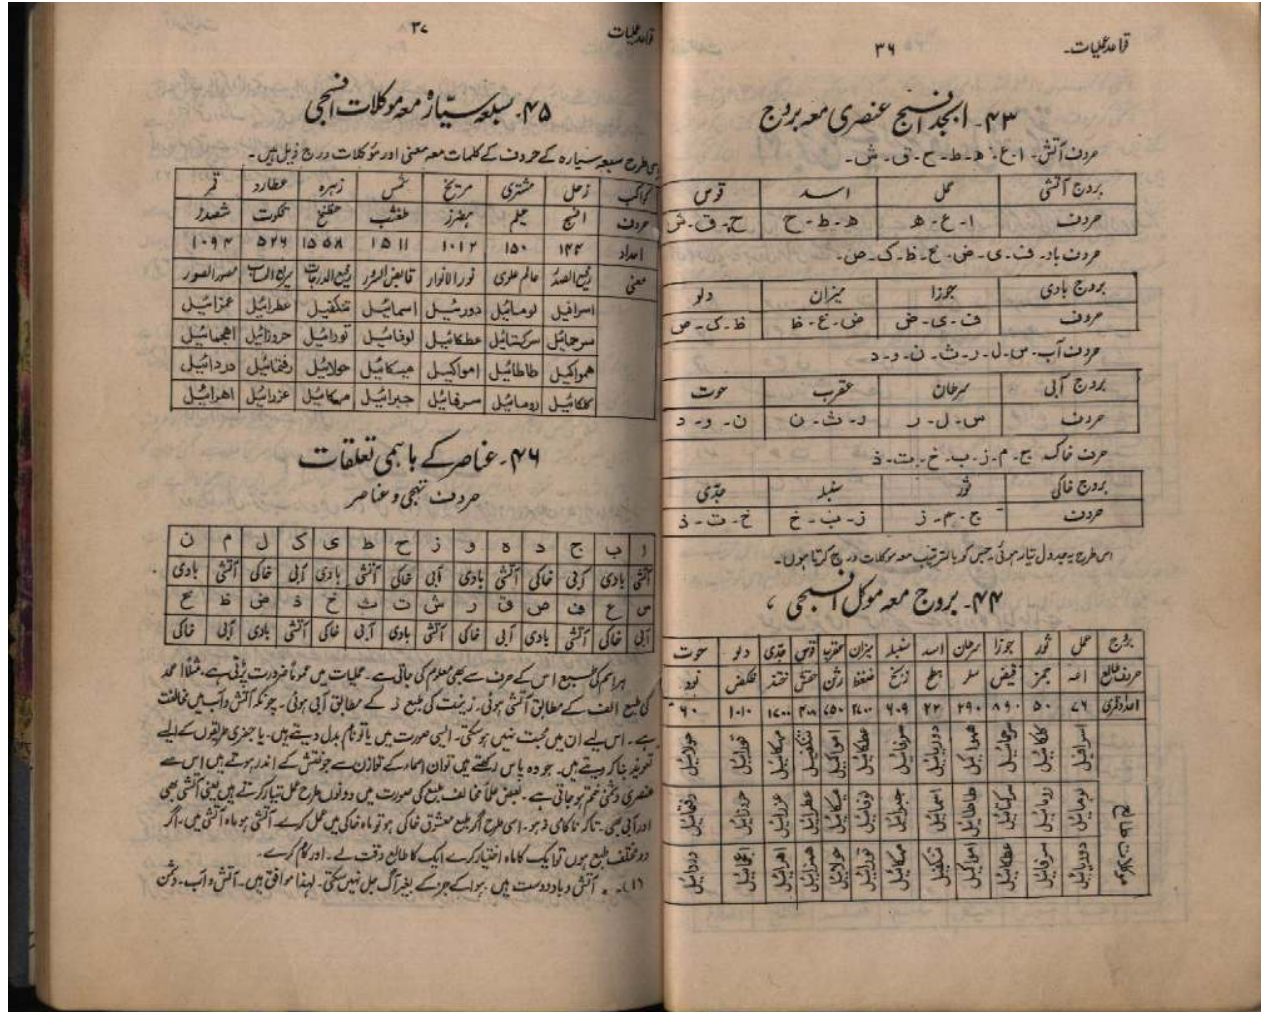 قواعد عملیات۔
۳۶
۴۳۔ ابجد انسیج عنصری معہ بروج
حروف آتش۔ ا۔ ع۔ ھ۔ ط۔ ح۔ ق۔ ش۔
بروج آتشی حمل اسد قوس
حروف ا۔ ع۔ ھ ھ۔ ط۔ ح ح۔ ق۔ ش
حروف باد۔ ف۔ ی۔ ض۔ غ۔ ظ۔ ک۔ ص۔
بروج بادی جوزا میزان دلو
حروف ف۔ ی۔ ض ض۔ غ۔ ظ ظ۔ ک۔ ص
حروف آب۔ س۔ ل۔ ر۔ ث۔ ن۔ و۔ د
بروج آبی سرطان عقرب حوت
حروف س۔ ل۔ ر ر۔ ث۔ ن ن۔ و۔ د
حرف خاک۔ ج۔ م۔ ز۔ ب۔ خ۔ ت۔ ذ
بروج خاکی ثور سنبلہ جدی
حروف ج۔ م۔ ز ز۔ ب۔ خ خ۔ ت۔ ذ
اس طرح یہ جدول تیار ہوئی۔ جس کو بالترتیب معہ موکلات درج کرتا ہوں۔
۴۴۔ بروج معہ موکل انسجی
بروج حمل ثور جوزا سرطان اسد سنبلہ میزان عقرب قوس جدی دلو حوت
حرف طالع اعہ جمز فیض سلر ہطح زبخ ضغظ رثن حقش ختذ ظکض نود
۷۶ ۵۰ ۸۹۰ ۲۹۰ ۲۲ ۶۰۹ ۲۷۰۰ ۷۵۰ ۴۰۸ ۱۷۰۰ ۱۰۱۰ ۶۰
اسرافیل کلکائیل سرحمائیل ھمواکیل دوریائیل سرفائیل عطکائیل امواکیل تنکفیل مہکائیل تورائیل حولائیل
لومائیل رومائیل سرکیتائیل طاطائیل اسمائیل جبرائیل لوفائیل میکائیل عطرائیل عزرائیل حروزائیل رفتمائیل
دوریائیل سرفائیل عطکائیل امواکیل تنکفیل مہکائیل تورائیل حولائیل ھمزائیل اھرائیل اھجمائیل دردائیل
قواعد عملیات
۳۷
۴۵۔ سبعہ سیّارہ معہ موکلات انسجی
اسی طرح سبعہ سیارہ کے حروف کے کلمات معہ معنی اور مؤکلات درج ذیل ہیں۔
کواکب زحل مشتری مریخ شمس زہرہ عطارد قمر
حروف
اعداد ۱۴۴ ۱۵۰ ۱۰۱۲ ۱۵۱۱ ۱۵۵۸ ۵۲۶ ۱۰۹۴
معنی عالم علوی نور الانوار رفیع الدرجات مصور الصور
اسرافیل لومائیل دوریئیل اسمائیل تنکفیل عطرائیل عزرائیل
سرحمائل سرکیتائیل عطکائیل لوفائیل تورائیل حروزائیل اھجمائیل
ھمواکیل طاطائیل امواکیل میکائیل حولائیل رفتمائیل دردائیل
کلکائیل رومائیل سرفائیل جبرائیل مہکائیل عزرائیل اھرائیل
۴۶۔ عناصر کے باہمی تعلقات
حروف تہجی و عناصر
ا ب ج د ہ و ز ح ط ی ک ل م ن
آتشی بادی آبی خاکی آتشی بادی آبی خاکی آتشی بادی آبی خاکی آتشی بادی
س ع ف ص ق ر ش ت ث خ ذ ض ظ غ
آبی خاکی آتشی بادی آبی خاکی آتشی بادی آبی خاکی آتشی بادی آبی خاکی
ہر اسم کی طبع اس کے حرف سے بھی معلوم کی جاتی ہے۔ عملیات میں عموماً ضرورت پڑتی ہے۔ مثلاً احمد
کی طبع الف کے مطابق آتشی ہوئی۔ زینت کی طبع ز کے مطابق آبی ہوئی۔ چونکہ آتش و آب میں مخالفت
ہے۔ اس لیے ان میں محبت نہیں ہوسکتی۔ ایسی صورت میں یا تو نام بدل دیتے ہیں۔ یا جفری طریقوں کے ایسے
تعویذ بنا کر دیتے ہیں۔ جو وہ پاس رکھتے ہیں تو ان اسماء کے توازن سے جو نقش کے اندر ہوتے ہیں اس سے
عنصری دشمنی ختم ہوجاتی ہے۔ بعض علماً مخالف طبع کی صورت میں دونوں طرح عمل تیار کرتے ہیں یعنی آتشی بھی
اور آبی بھی۔ تاکہ ناکامی نہ ہو۔ اسی طرح اگر طبع معشوق خاکی ہو تو ماہ خاکی میں عمل کرے۔ آتشی ہو ماہ آتشی میں۔ اگر
دو مختلف طبع ہوں تو ایک کا ماہ اختیار کرے ایک کا طالع وقت لے۔ اور کام کرے۔
(۱)۔ آتش و باد دوست ہیں۔ ہوا کے جز کے بغیر آگ جل نہیں سکتی۔ لہذا موافق ہیں۔ آتش و آب۔ دشمن